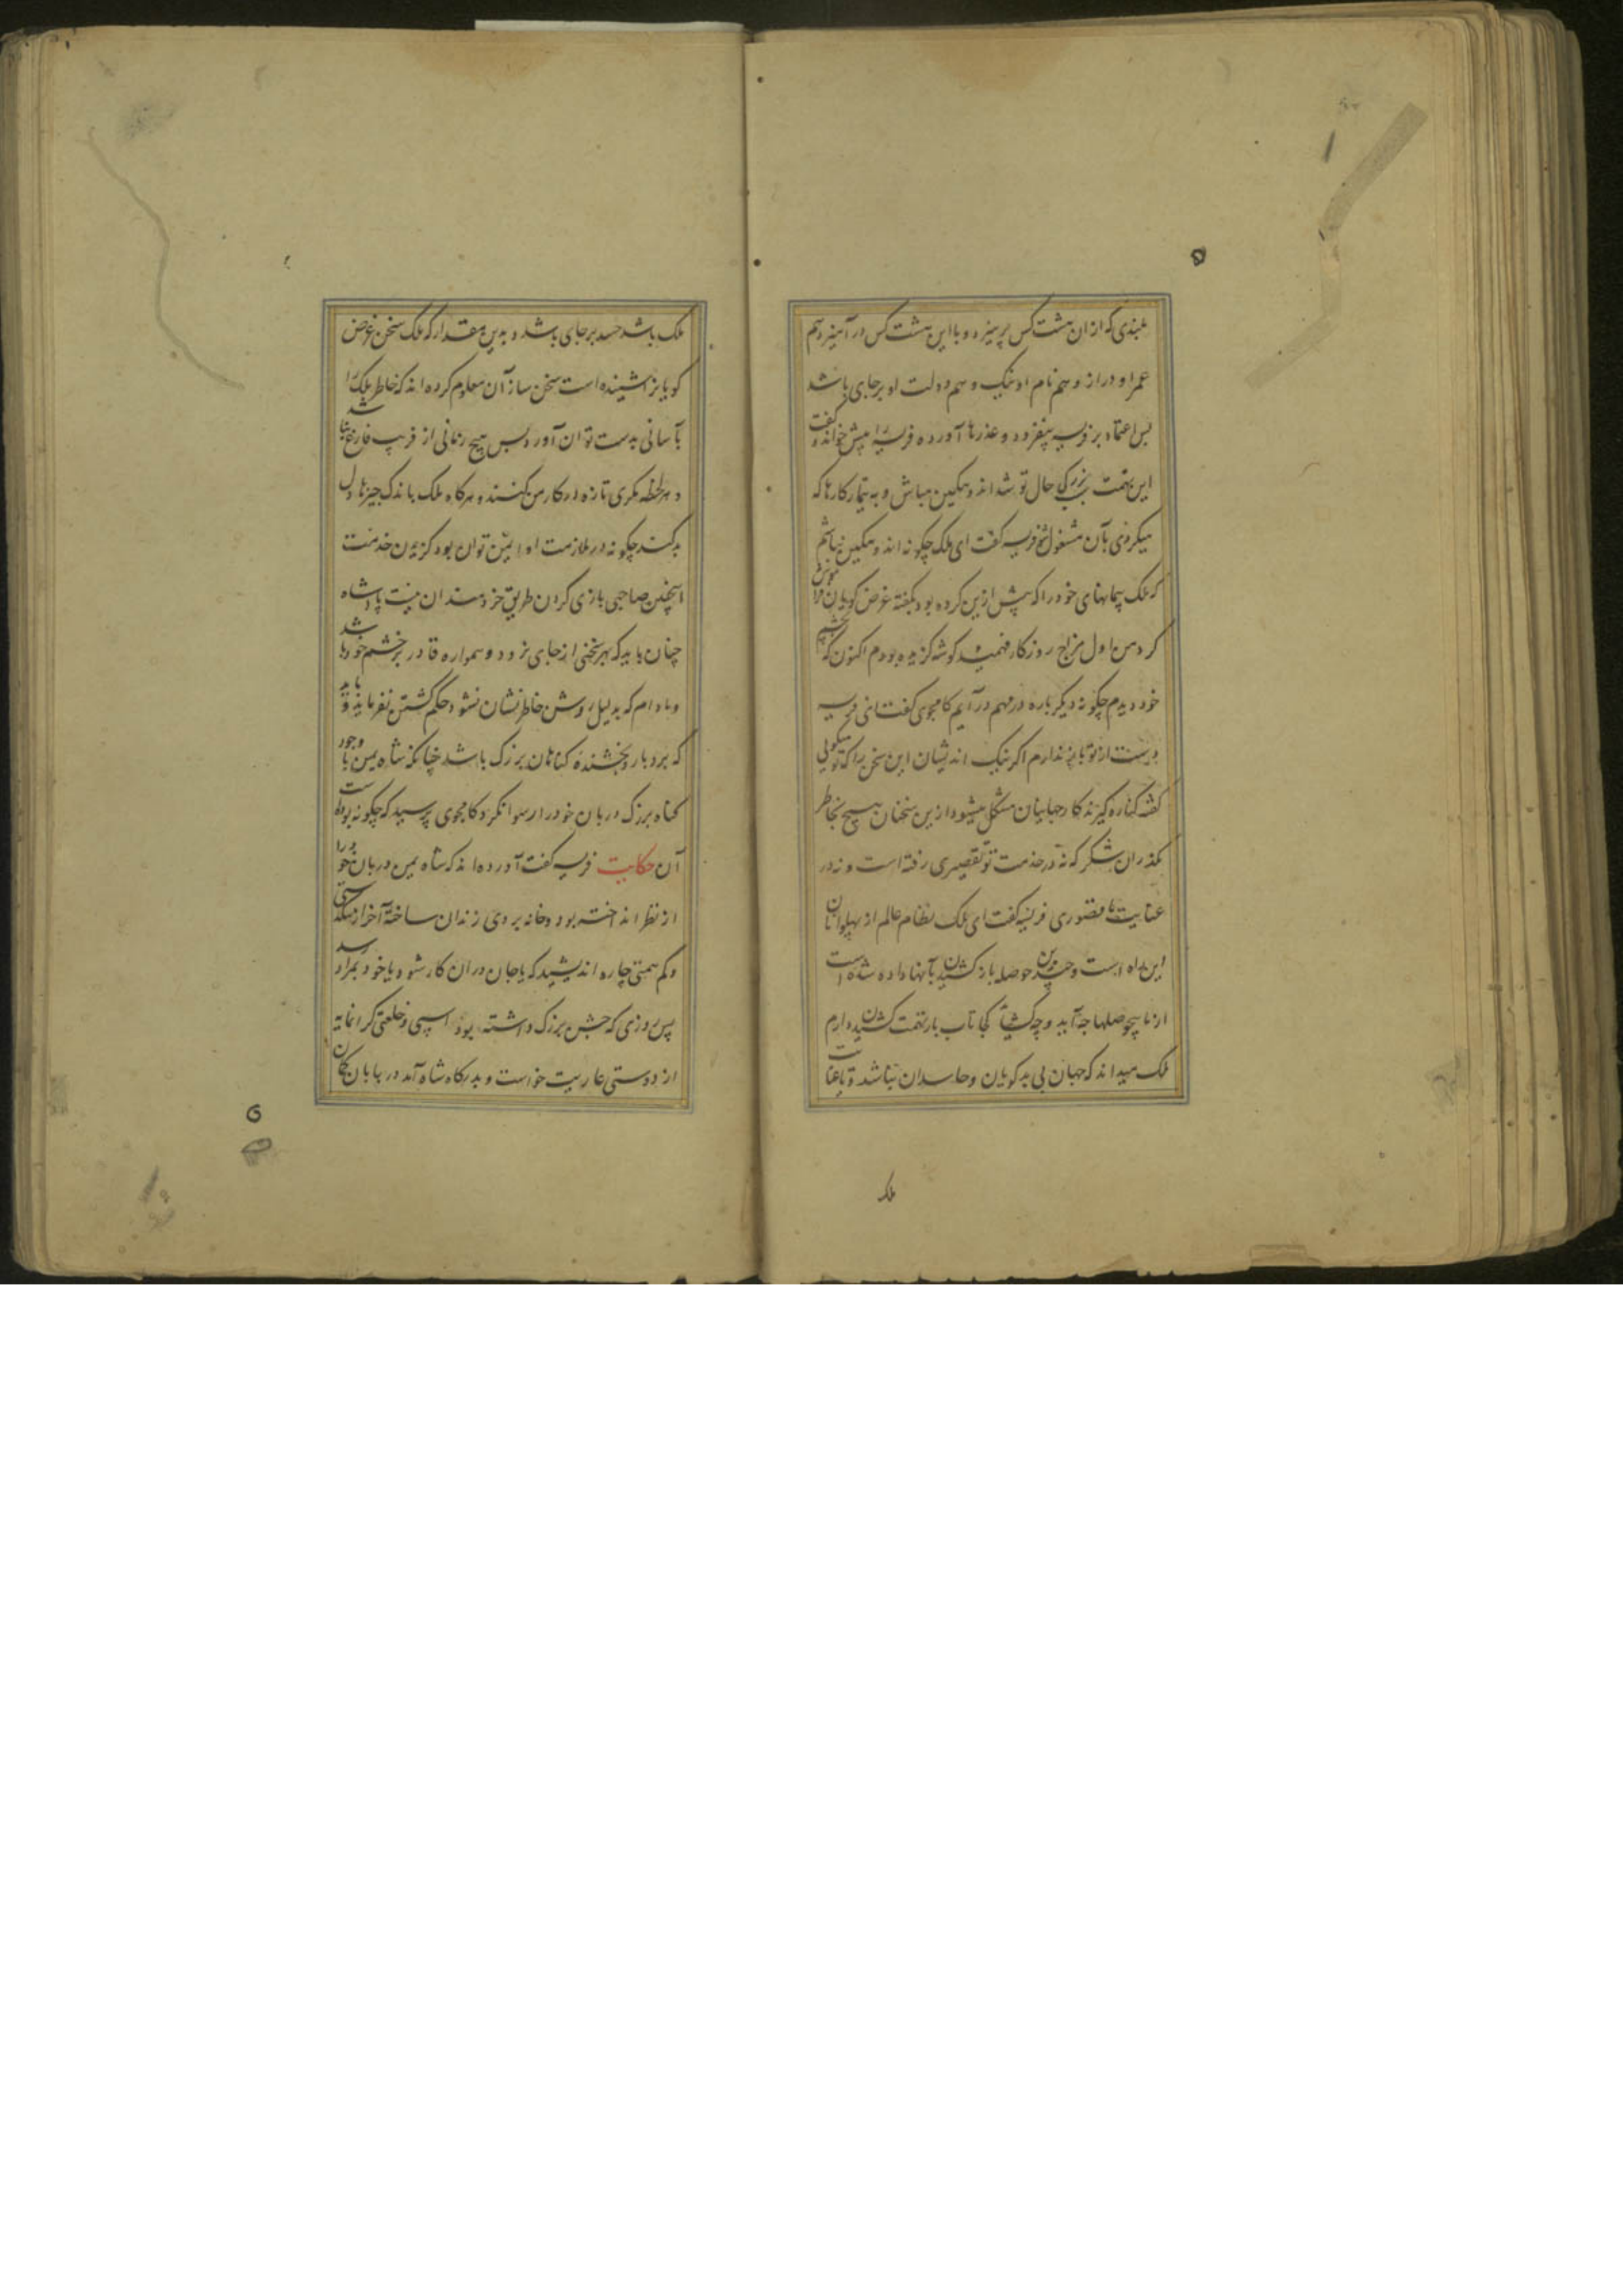 بندی که ازان هشت کس پرهیزد و با این هشت کس در آمیزد هم
عمر او دراز و هم نام او نیک و هم دولت او بر جای باشد
پس اعتماد بر فریسه بیفزود و عذرها آورده فریسه را پیش خواند و گفت
این تهمت سبب بزرگی حال تو شد اندوهگین مباش و به تیمار کارها که
میکردی بآن مشغول شو فریسه گفت ای ملک چگونه اندوهگین نباشم
که ملک پیمانهای خود را که پیش ازین کرده بود بگفته غرض گویان فراموش
کرد من اول مزاج روزگار فهمیده گوشه گزیده بودم اکنون که بچشم
خود دیدم چگونه دیگرباره در مهم در آیم کامجوی گفت ای فریسه
درست از تو باور ندارم اگر نیک اندیشان این سخن را که تو میگویی
گفته کناره گیرند کار جهانیان مشکل میشود ازین سخنان هیچ بخاطر
مگذران شکر که نه در خدمت تو تقصیری رفته است و نه در
عنایت ما قصوری فریسه گفت ای ملک نظام عالم از پهلوانان
این راه است و چندین حوصله باز کشیدن بآنها داده شده است
از ما بیحوصلها چه آید و چه گشاید کجا تاب بار تهمت کشیدن دارم
ملک میداند که جهان بی بدگویان و حاسدان نباشد و تا عنایت
ملک
ملک باشد حسد بر جای باشد و بدین مقدار که ملک سخن غرض
گویانرا شنیده است سخن سازان معلوم کرده اند که خاطر ملک را
بآسانی بدست توان آورد پس هیچ زمانی از فریب فارغ نباشند
و هر لحظه مکری تازه در کار من کنند و هرگاه ملک باندک چیزها دل
بد کند چگونه در ملازمت او ایمن توان بود گزیدن خدمت
اینچنین صاحبی بازی کردن طریق خردمندان نیست پادشاه
چنان باید که بهر سخنی از جای نرود و همواره قادر بر خشم خود باشد
و مادام که بدلیل روشن خاطر نشان نشود حکم کشتن نفرماید و باید
که بردبار و بخشندهٔ گناهان بزرگ باشد چنانکه شاه یمن با وجود
گناه بزرگ دربان خود را رسوا نکرد کامجوی پرسید که چگونه بوده است
آن حکایت فریسه گفت آورده اند که شاه یمن دربان خود را
از نظر انداخته بود و خانه بر وی زندان ساخته آخر از تنگدستی
و کم همتی چاره اندیشید که یا جان دران کار شود یا خود بمراد رسد
پس روزی که جشن بزرگ داشته بود اسپی و خلعتی گرانمایه
از دوستی عاریت خواست و بدرگاه شاه آمد دربانان